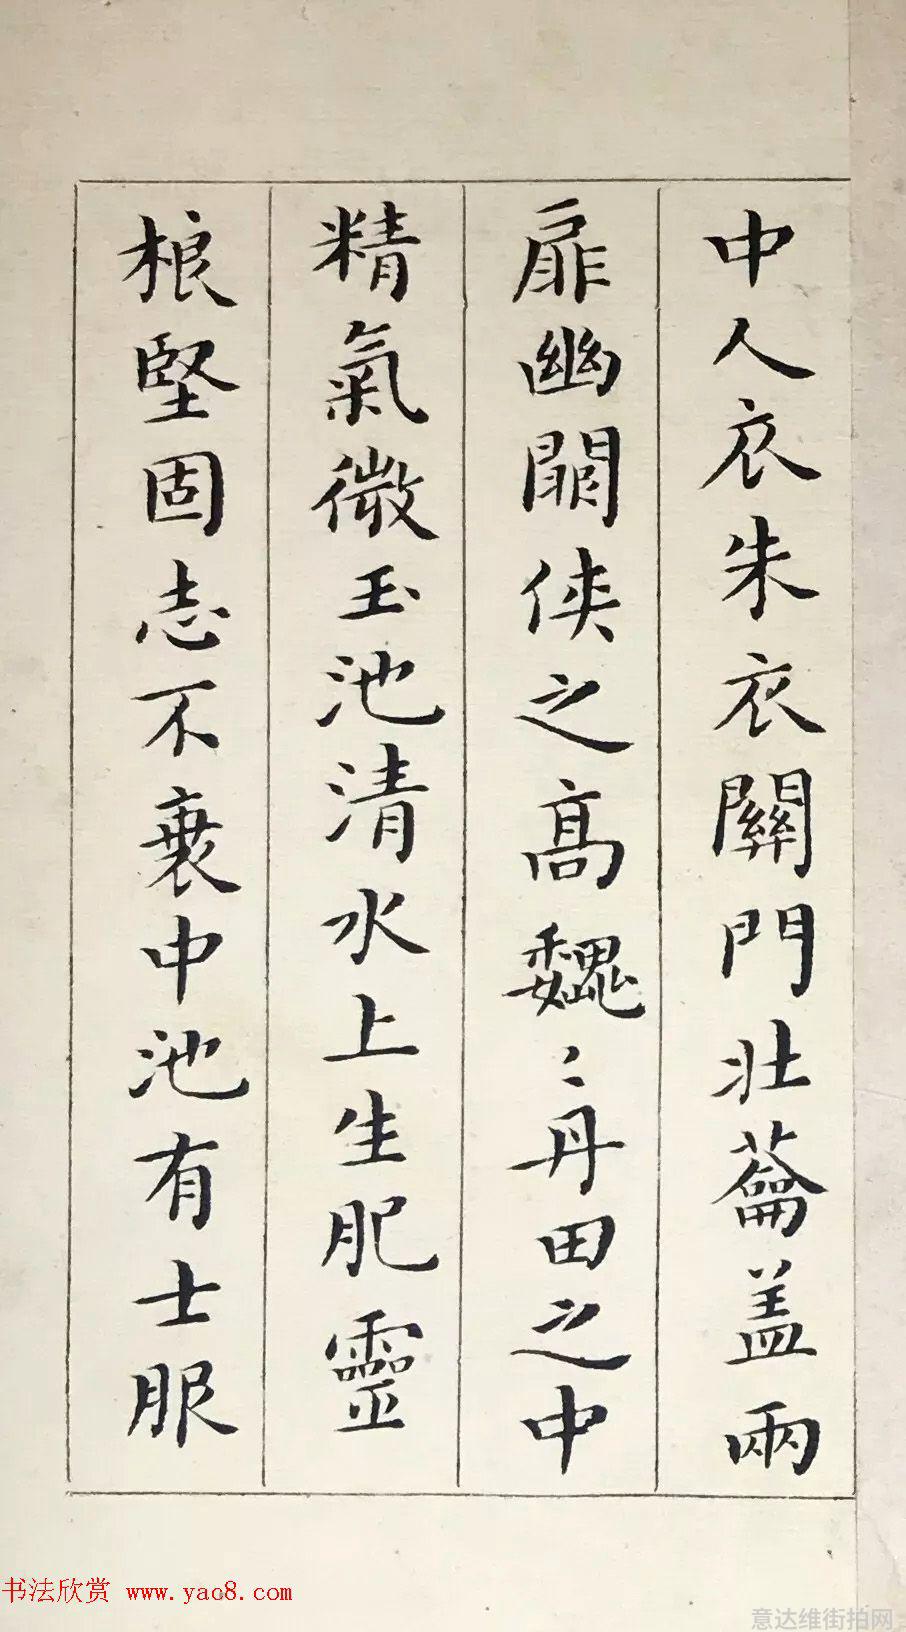 中人衣朱衣關門壯蘥盖兩
扉幽闗侠之高巍〻丹田之中
精氣微玉池清水上生肥靈
根堅固志不衰中池有士服
书法欣赏 www.yac8.com
意达维街拍网